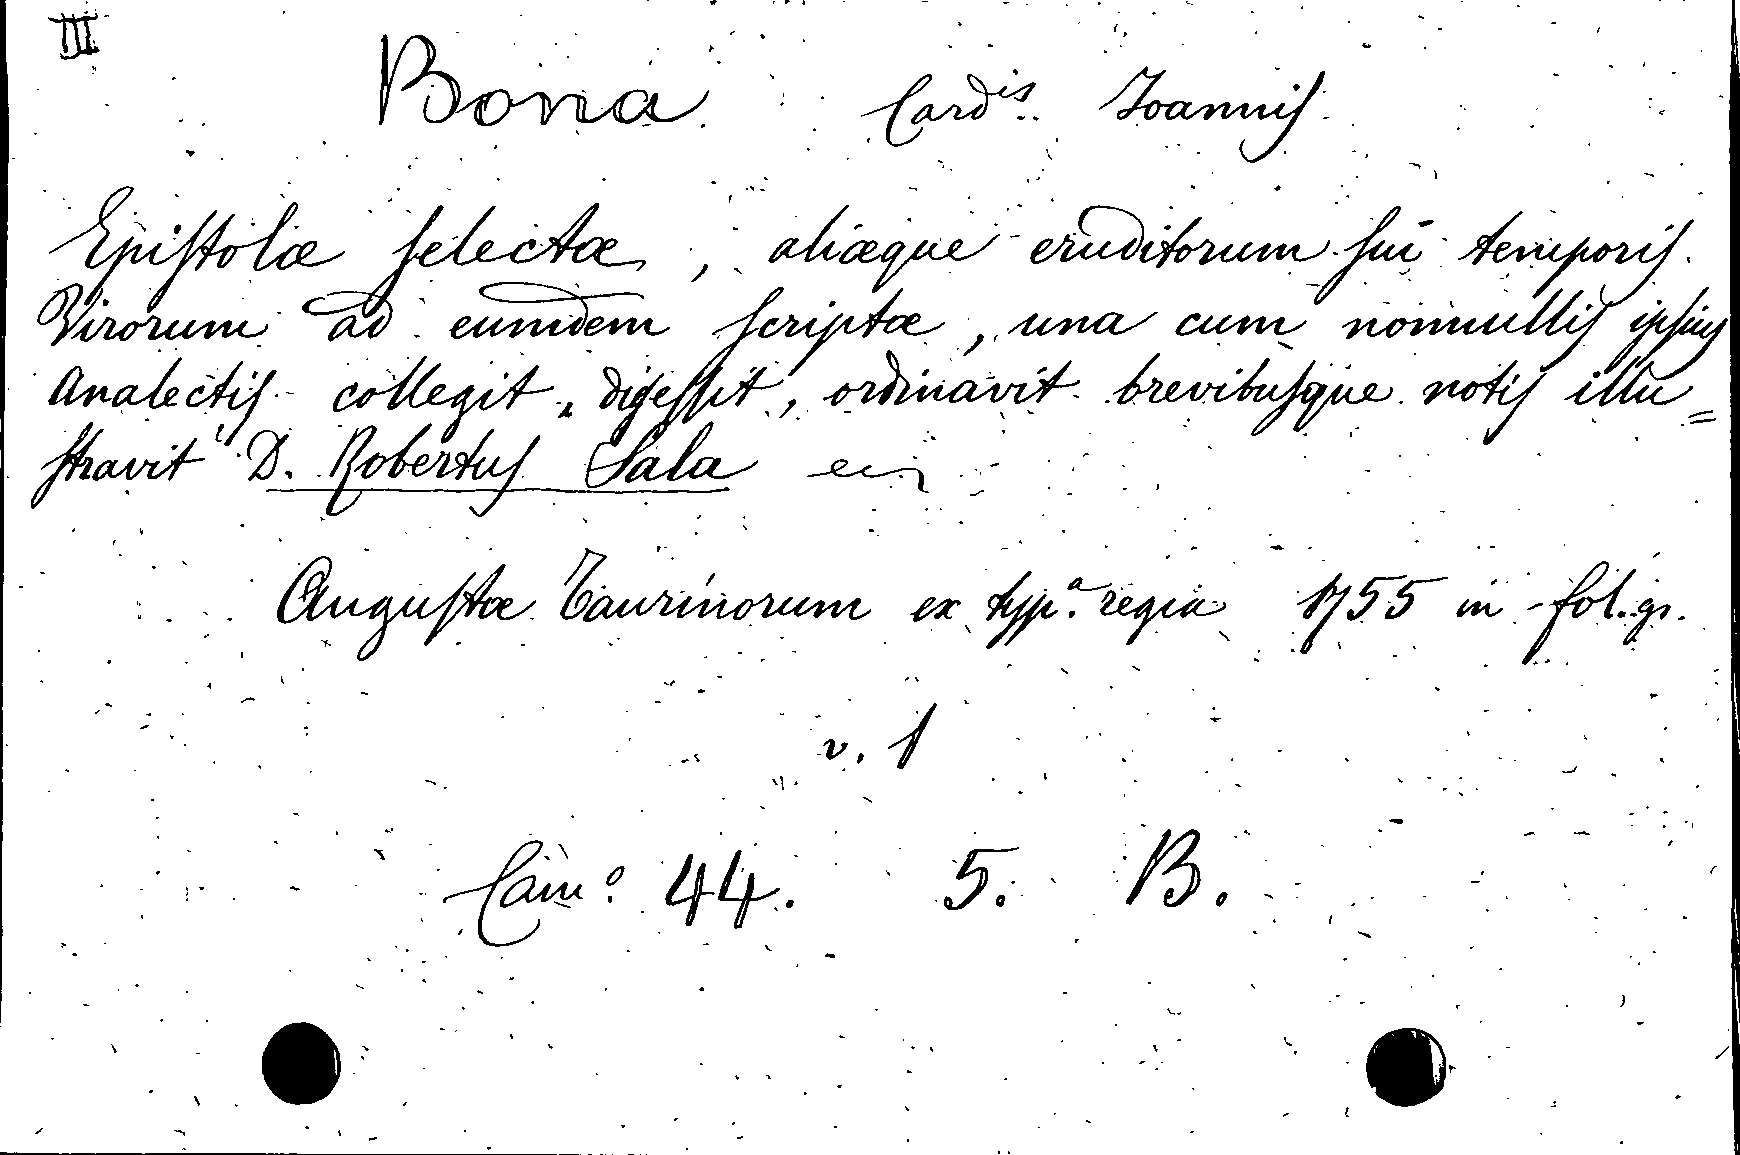 III
Bona Card.is Ioannis
Epistolæ selectæ, aliæque eruditorum sui temporis
Virorum ad eumdem scriptæ, una cum nonnullis ipsius
Analectis collegit, digessit, ordinavit brevibusque notis illu=
stravit D. Robertus Sala
Augustæ Taurinorum ex typ.a regia 1755 in fol. gr.
v. 1
Cam.o 44. 5. B.